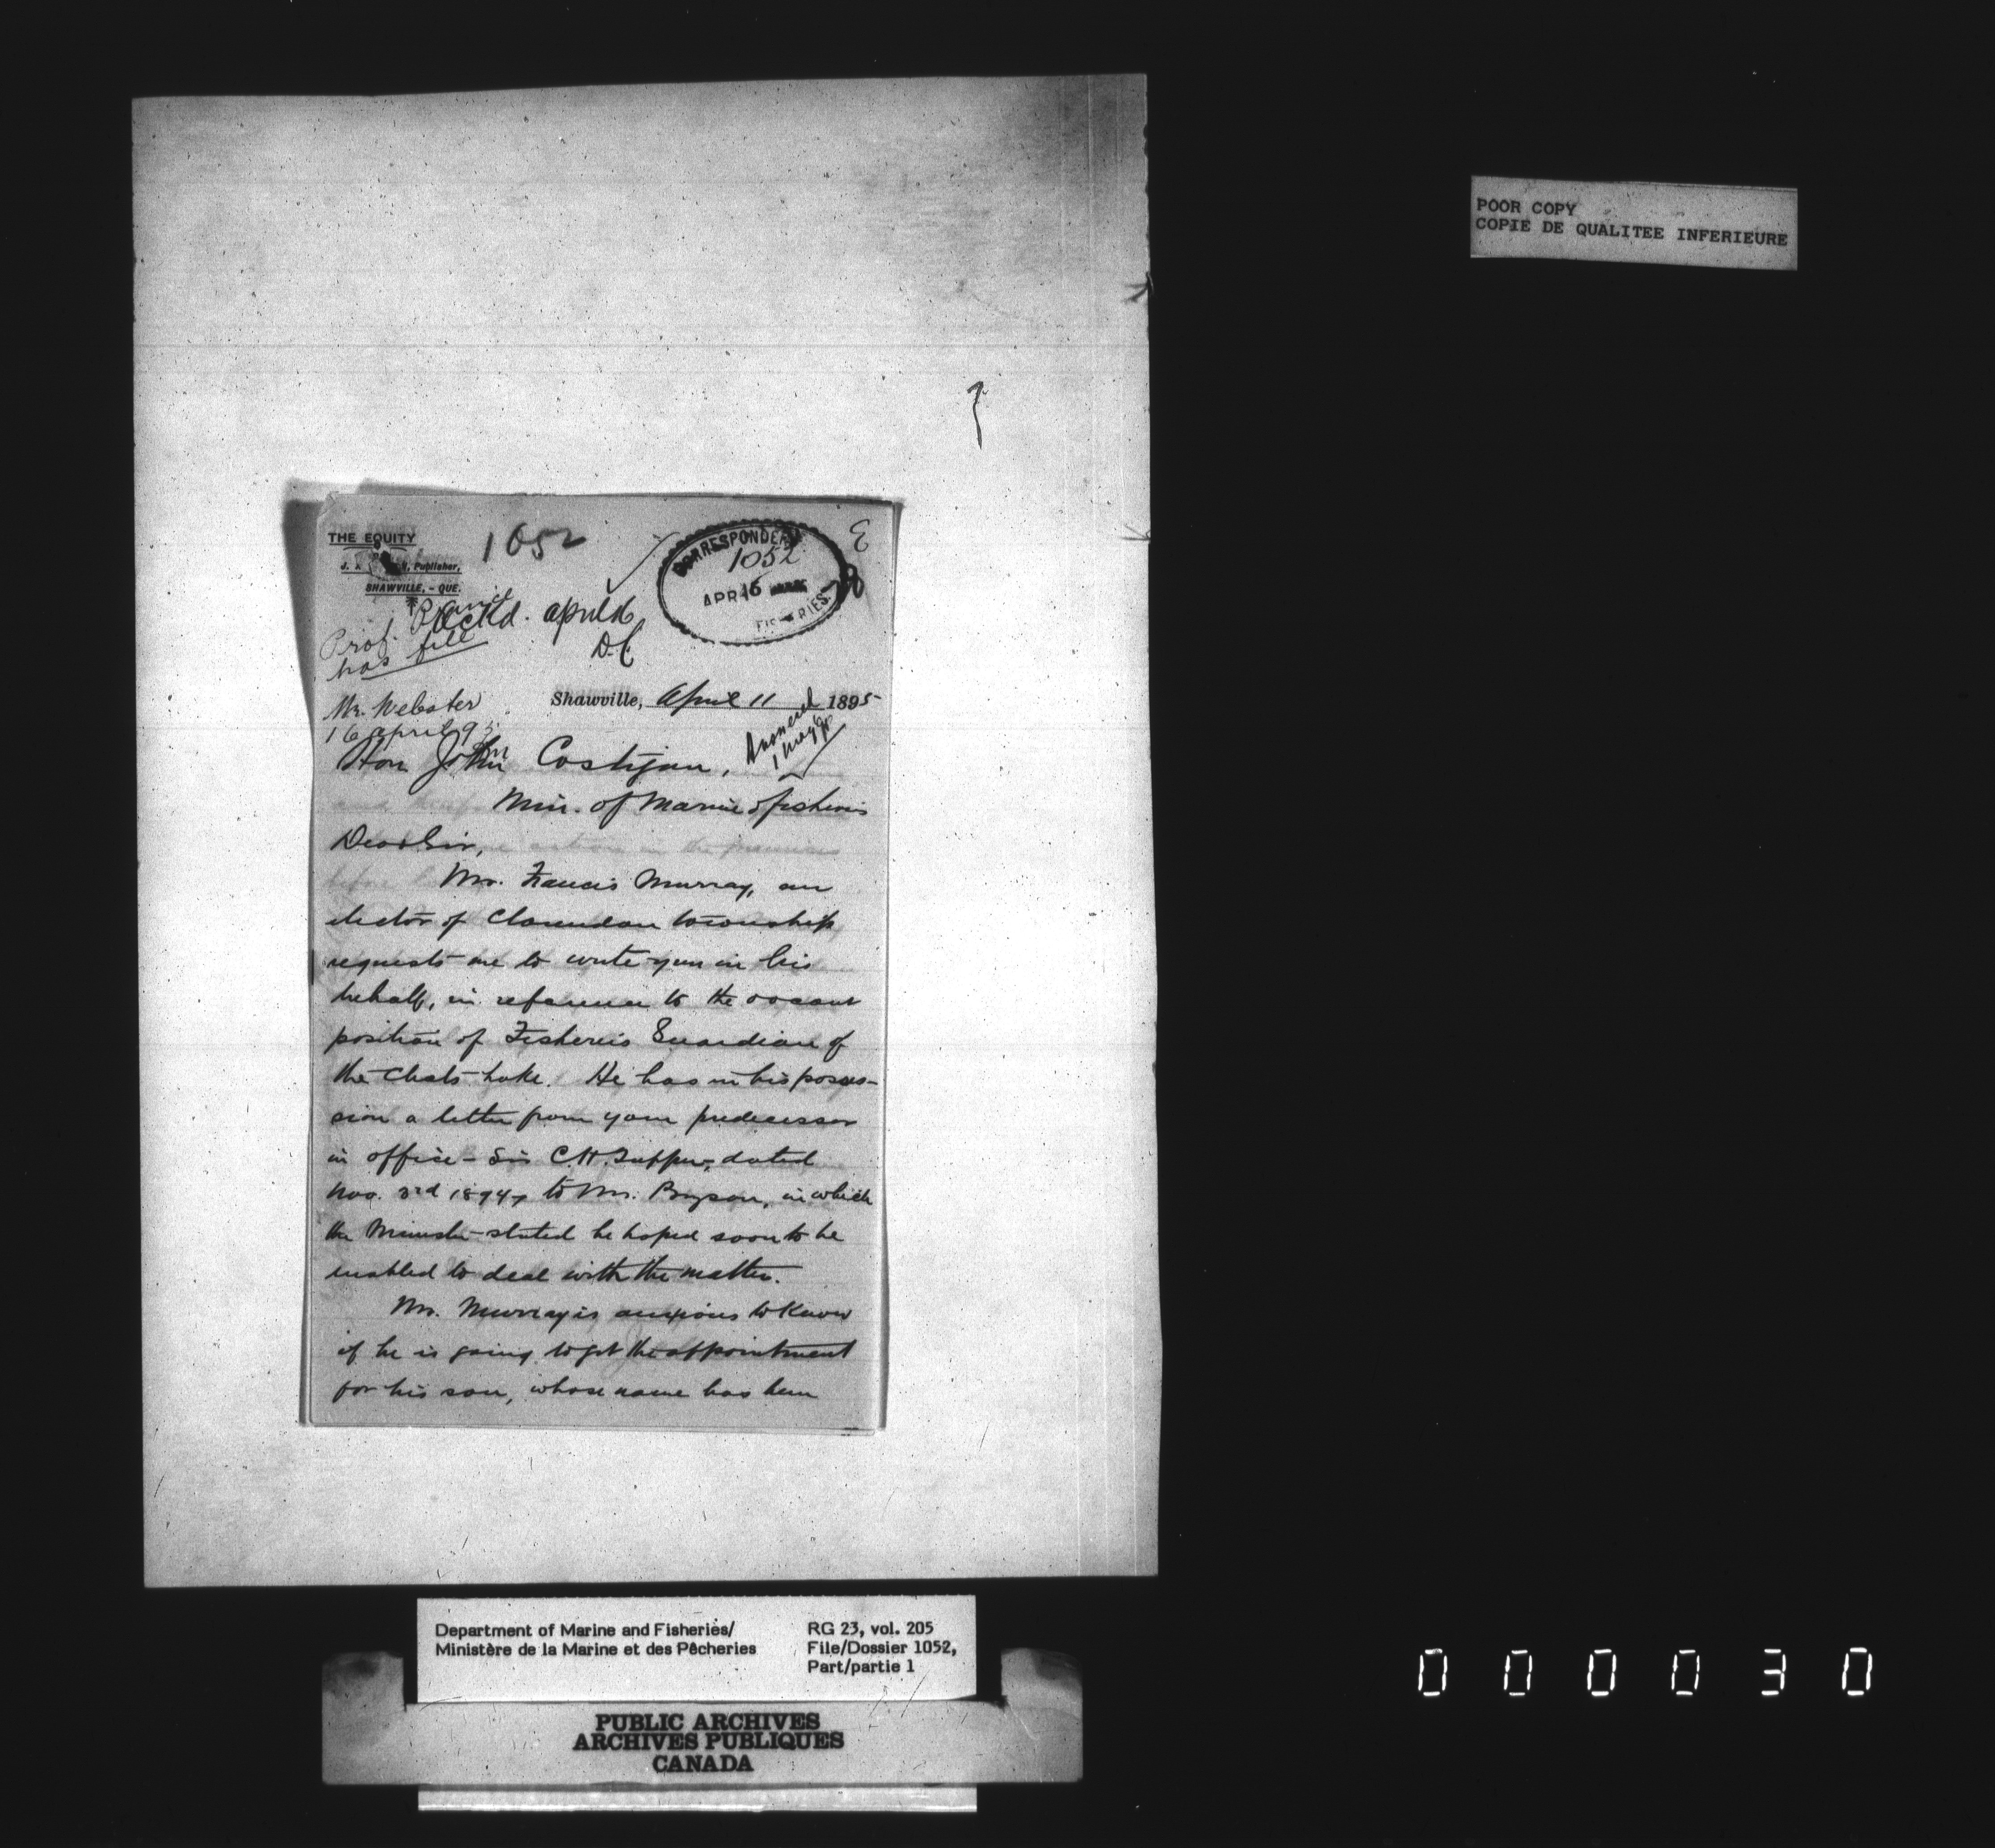 POOR COPY
COPIE DE QUALITEE INFERIEURE
THE EQUITY
1052
J. , Publisher,
SHAWVILLE, - QUE.
CORRESPONDENCE
1052
APR 16
FISHERIES.
Ackd. april 16
D.C.
Prof. Prince
has file
Mr. Webster
16 april 95
Shawville, April 11 1895
Answered
1 May 95
Hon John Costigan,
Min. of Marine & fisheries
Dear Sir,
Mr. Francis Murray, an
elector of Clarendon township
requests me to write you in his
behalf, in reference to the vacant
position of Fisheries Guardian of
the Chats Lake. He has in his posses-
sion a letter from your predecessor
in office - Sir C.H. Tupper, dated
Nov. 3rd 1894, to Mr. Bryson, in which
the Minister stated he hoped soon to be
enabled to deal with the matter.
Mr. Murray is anxious to know
if he is going to get the appointment
for his son, whose name has been
Department of Marine and Fisheries/
Ministère de la Marine et des Pêcheries
RG 23, vol. 205
File/Dossier 1052,
Part/partie 1
PUBLIC ARCHIVES
ARCHIVES PUBLIQUES
CANADA
000030